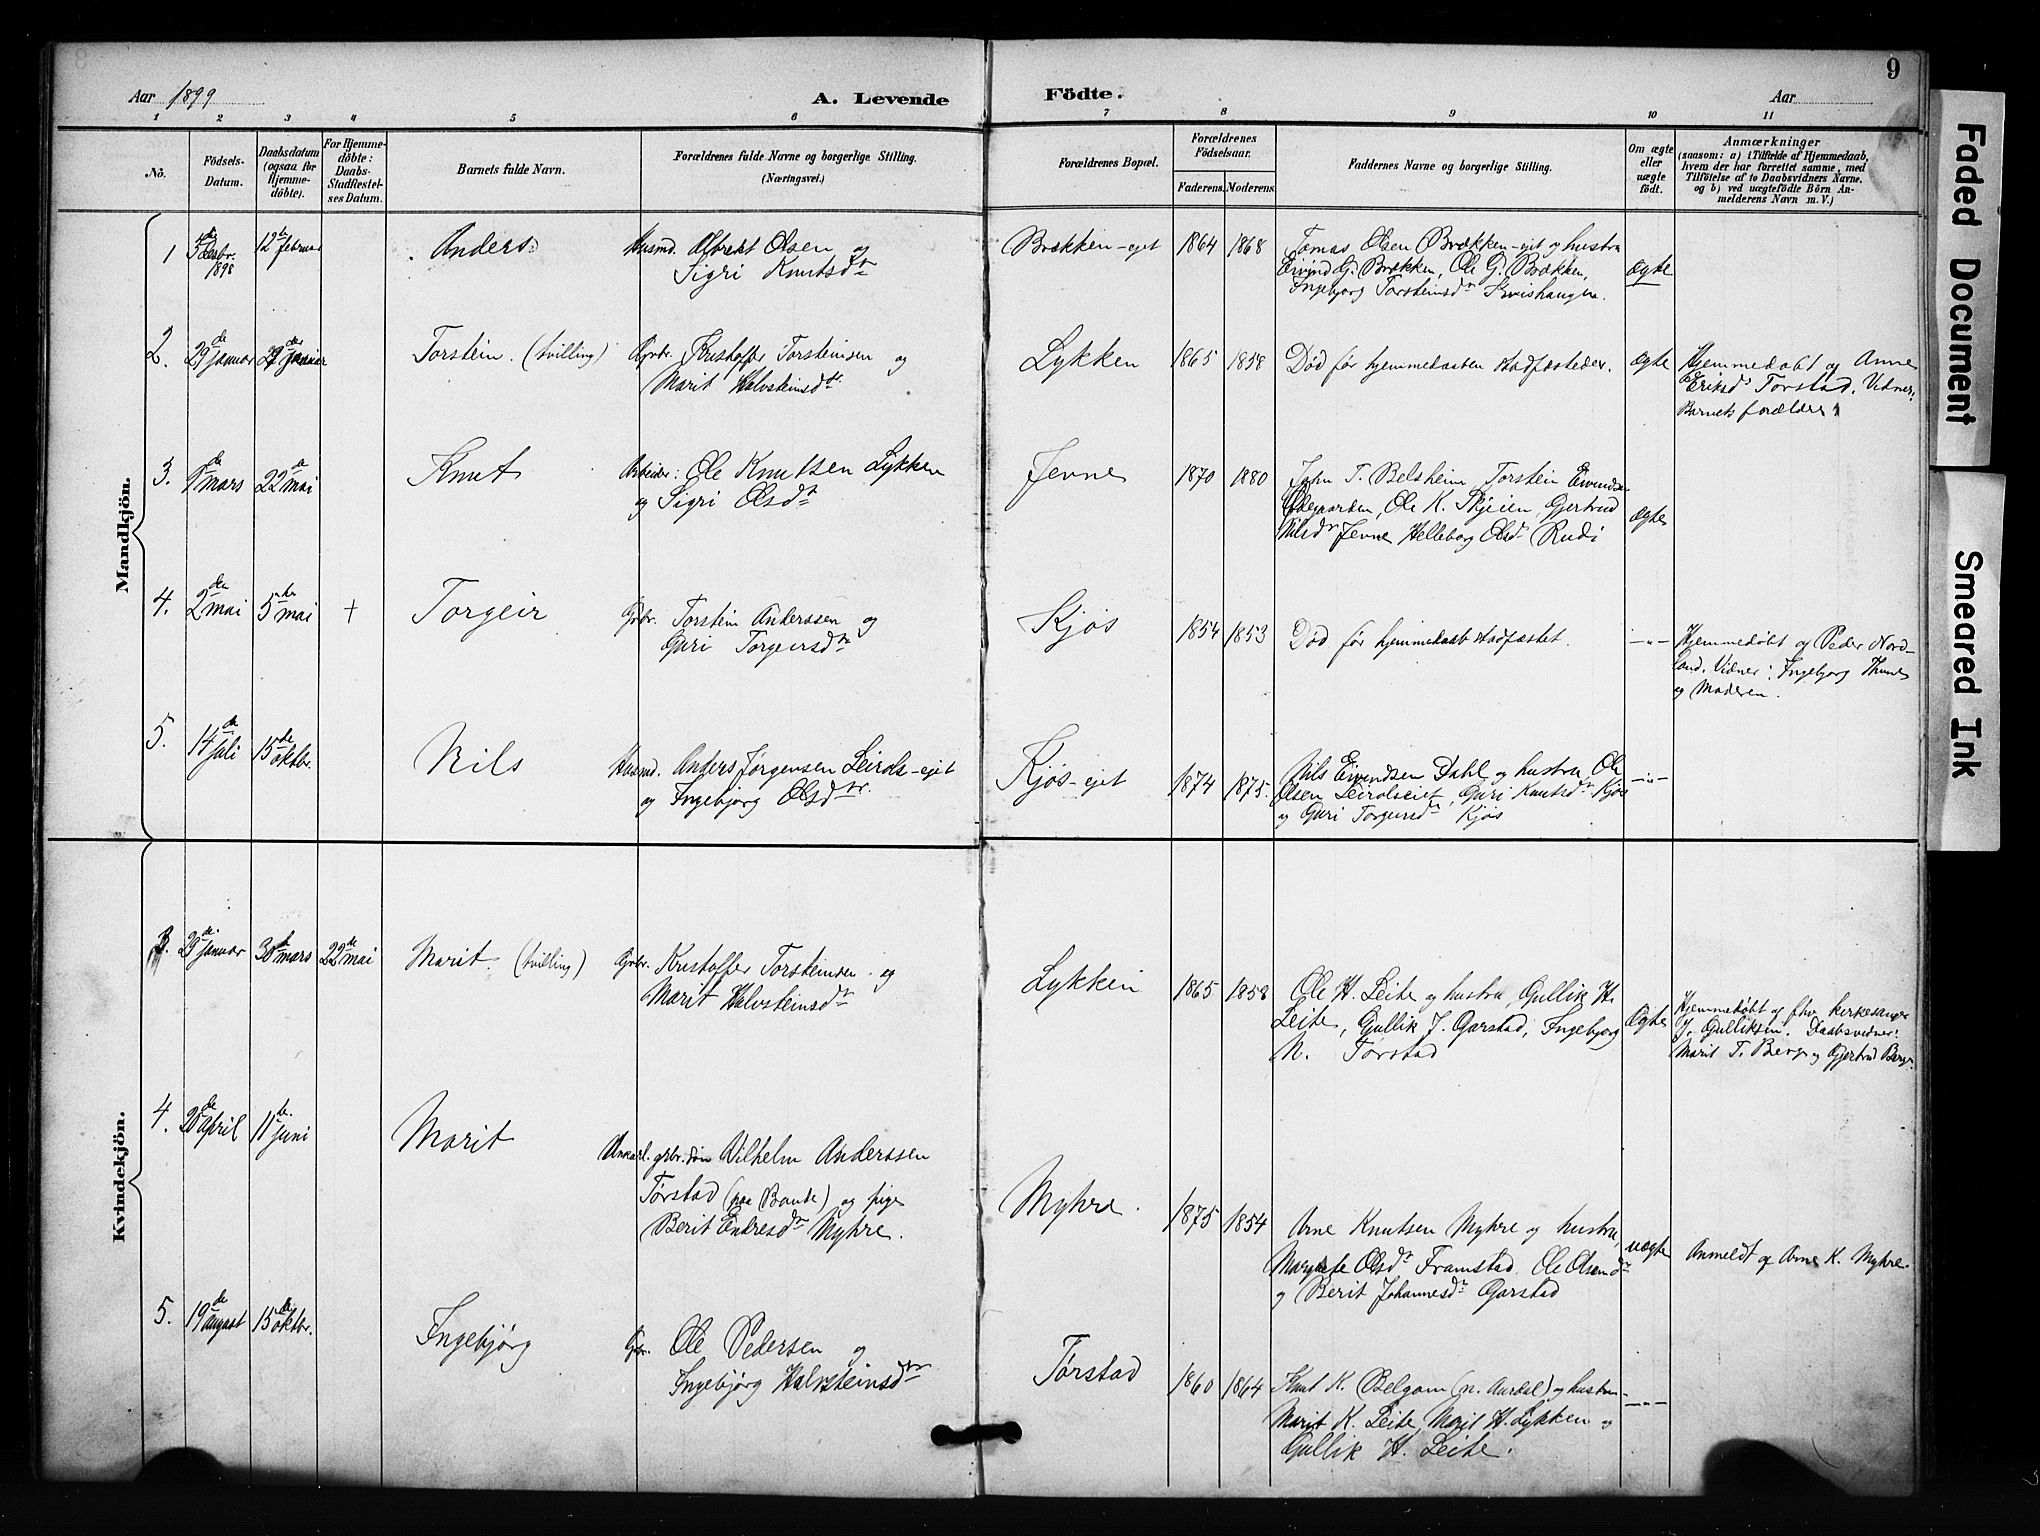 9
Aar 1899
A. Levende
Födte.
Aar
1 2 3 4 5 6 7 8 9 10 11
No.
Födsels-Datum.
Daabsdatum (ogsaa for Hjemmedöbte).
For Hjemmedöbte: Daabs-Stadfæstelses Datum.
Barnets fulde Navn.
Forældrenes fulde Navne og borgerlige Stilling. (Næringsvei.)
Forældrenes Bopæl.
Forældrenes Födselsaar.
Faderens. Moderens.
Faddernes Navne og borgerlige Stilling.
Om ægte eller uægte födt.
Anmærkninger
(saasom: a) i Tilfælde af Hjemmedaab, hvem der har forrettet samme, med Tilföielse af to Daabsvidners Navne. og b) ved uægtefödte Börn Anmelderens Navn m. V.)
Mandkjön.
1 3de desbr. 1898 12te februar
Anders
Husmd. Albrekt Olsen og
Sigri Knutsdtr
Brækken-ejet 1864 1868
Tomas Olsen Brækken-ejet og hustru
Eivind G. Brækken, Ole G. Brækken,
Ingebjørg Torsteinsdtr
ægte
2. 29de januar 29de januar
Torstein. (tvilling)
Gbr. Kristoffer Torsteinsen og
Marit Halvsteinsdtr
Lykken 1865 1858
Død før hjemmedaaben stadfæstedes.
ægte
Hjemmedøbt af Anne
Eriksdr Torstad. Vidner:
Barnets forældre
3. 1de mars 22de mai
Knut
Arbeider: Ole Knutsen Lykken
og Sigri Olsdtr
Jevne 1870 1880
John T. Belsheim, Torstein Eivindsen
Ødegaarden, Ole K. Skjeien, Gjertrud
Nilsdtr Jevne Helleborg Olsdr Rudi
ægte
4. 2den mai 5te mai +
Torgeir
Gbr. Torstein Anderssen og
Guri Torgeirsdtr
Kjøs
1854 1853
Død før hjemmedaab stadfæstet.
-"-
Hjemmedøbt af Peder Nordland. Vidner: Ingebjørg Thune
og Moderen.
5. 14de juli 15de oktbr.
Nils
Husmd. Anders Jørgensen Leirols-ejet
og Ingebjørg Olsdtr.
Kjøs-ejet
1874 1875.
Nils Eivindsen Dahl og hustru, Ole
Olsen Leirolseiet, Guri Knutsdtr Kjøs
og Guri Torgeirsdtr Kjøs
-"-
Kvindekjön.
3. 29de januar 30te mars 22de mai
Marit. (tvilling)
Gbr. Kristoffer Torsteinsen og
Marit Halvsteinsdtr
Lykken
1865 1858
Ole H. Leite og hustru, Gullik H.
Leite, Gullik J. Garstad, Ingebjørg
N. Tørstad
Ægte
Hjemmedøbt af fhv. kirkesanger
J. Gulliksen. Daabsvidner:
Marit T. Berg og Gjertrud Berg.
4. 20de april 11te juni
Marit
Ungkarl. gbr. søn Vilhelm Anderssen
Tørstad (paa Bande) og pige
Berit Endresdtr Myhre.
Myhre.
1875 1854
Arne Knutsen Myhre og hustru,
Margrete Olsdtr Framstad, Ole Olsen
og Berit Johannesdtr Garstad
uægte
Anmeldt af Arne K. Myhre.
5. 19de august 15de oktbr.
Ingebjørg
Gbr. Ole Pedersen og
Ingebjørg Halvsteinsdtr
Tørstad
1860 1864
Knut K. Belgom (n. Aurdal) og hustru
Marit K. Leite, Marit H. Lykken og
Gullik H. Leite.
-"-
Faded Document
Smeared Ink